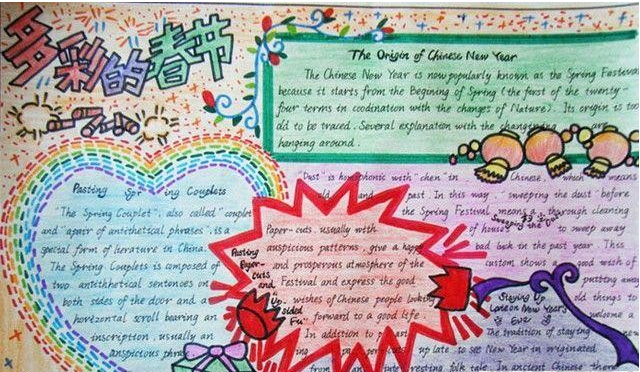 多彩的春节
The Origin of Chinese New Year
The Chinese New Year is now popularly known as the Spring Festival
because it starts from the Begining of Spring (the first of the twenty-
four terms in coodination with the changes of Nature). Its origin is too
old to be traced. Several explanation with the are
hanging around.
Pasting Spr ing Couplets
"The Spring Couplet", also called "couplet
and "a pair of antithetical phrases", is a
special form of literature in China.
The Spring Couplets is composed of
two antithetical sentences on
both sides of the door and a
horizontal scroll bearing an
inscription, usually an
auspicious phrase
Pasting
Paper-
cuts
and
Up-
sided
Fu"
Paper-cuts, usually with
auspicious patterns, give a happy
and prosperous atmosphere of the
Festival and express the good
wishes of Chinese people looking
forward to a good life.
In addition to
"Dust" is homophonic with "chen" in Chinese, which means
old and past. In this way, "sweeping the dust" before
the Spring Festival means a thorough cleaning
of houses to sweep away
bad luck in the past year. This
custom shows a good wish of
putting away
old things to
welcome a
Sweeping the Dust
Staying Up
Late on New Year's
Eve
The tradition of staying
up late to see New in originated
from an interesting folk tale. In ancient China there